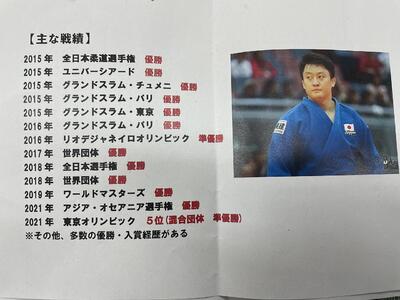 【主な戦績】
2015年 全日本柔道選手権 優勝
2015年 ユニバーシアード 優勝
2015年 グランドスラム・チュメニ 優勝
2015年 グランドスラム・パリ 優勝
2015年 グランドスラム・東京 優勝
2016年 グランドスラム・パリ 優勝
2016年 リオデジャネイロオリンピック 準優勝
2017年 世界団体 優勝
2018年 全日本選手権 優勝
2018年 世界団体 優勝
2019年 ワールドマスターズ 優勝
2021年 アジア・オセアニア選手権 優勝
2021年 東京オリンピック 5位(混合団体 準優勝)
※その他、多数の優勝・入賞経歴がある